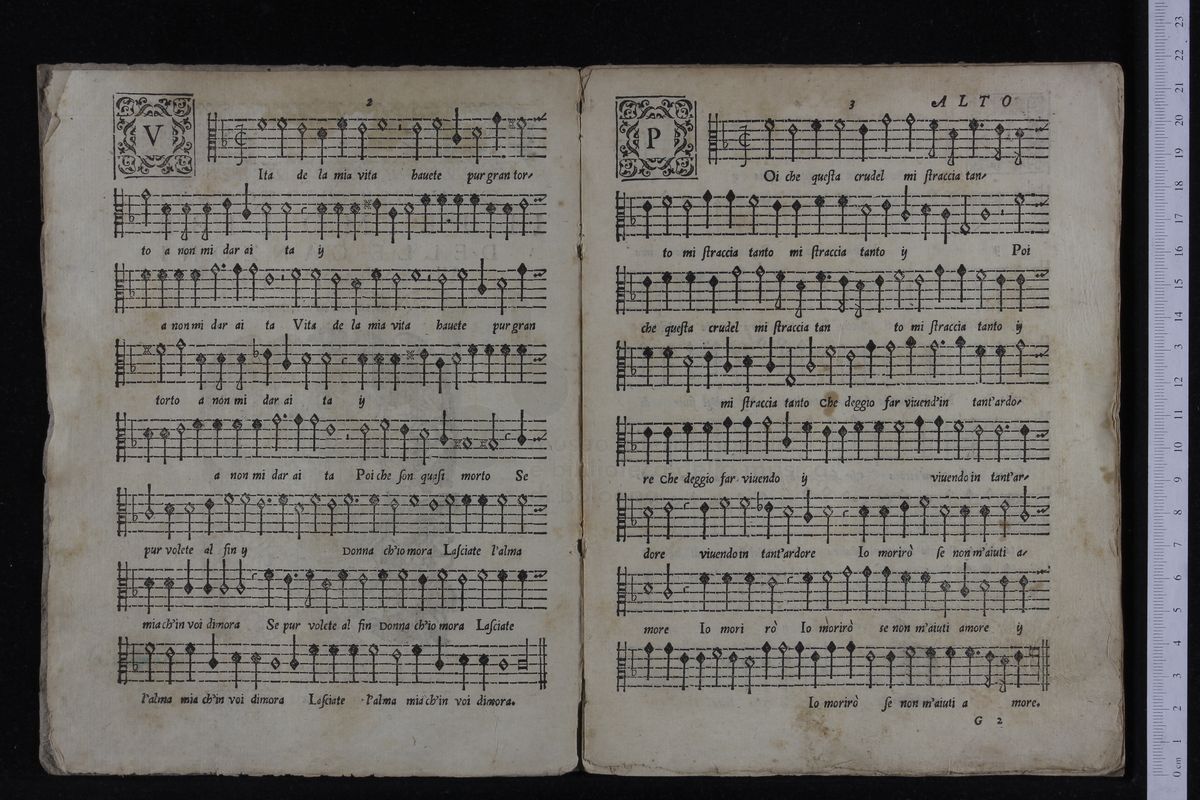 2
V
Ita de la mia vita hauete pur gran tor-
to a non mi dar ai ta ij
a non mi dar ai ta Vita de la mia vita hauete pur gran
torto a non mi dar ai ta ij
a non mi dar ai ta Poi che ſon quaſi morto Se
pur volete al fin ij Donna ch'io mora Laſciate l'alma
mia ch'in voi dimora Se pur volete al fin Donna ch'io mora Laſciate
l'alma mia ch'in voi dimora Laſciate l'alma mia ch'in voi dimora.
3 ALTO
P
Oi che queſta crudel mi ſtraccia tan-
to mi ſtraccia tanto mi ſtraccia tanto ij Poi
che queſta crudel mi ſtraccia tan to mi ſtraccia tanto ij
mi ſtraccia tanto Che deggio far viuend'in tant'ardo-
re Che deggio far viuendo ij viuendo in tant'ar-
dore viuendo in tant'ardore Io morirò ſe non m'aiuti a-
more Io mori rò Io morirò se non m'aiuti amore ij
Io morirò ſe non m'aiuti a more.
G 2
0 cm 1 2 3 4 5 6 7 8 9 10 11 12 13 14 15 16 17 18 19 20 21 22 23